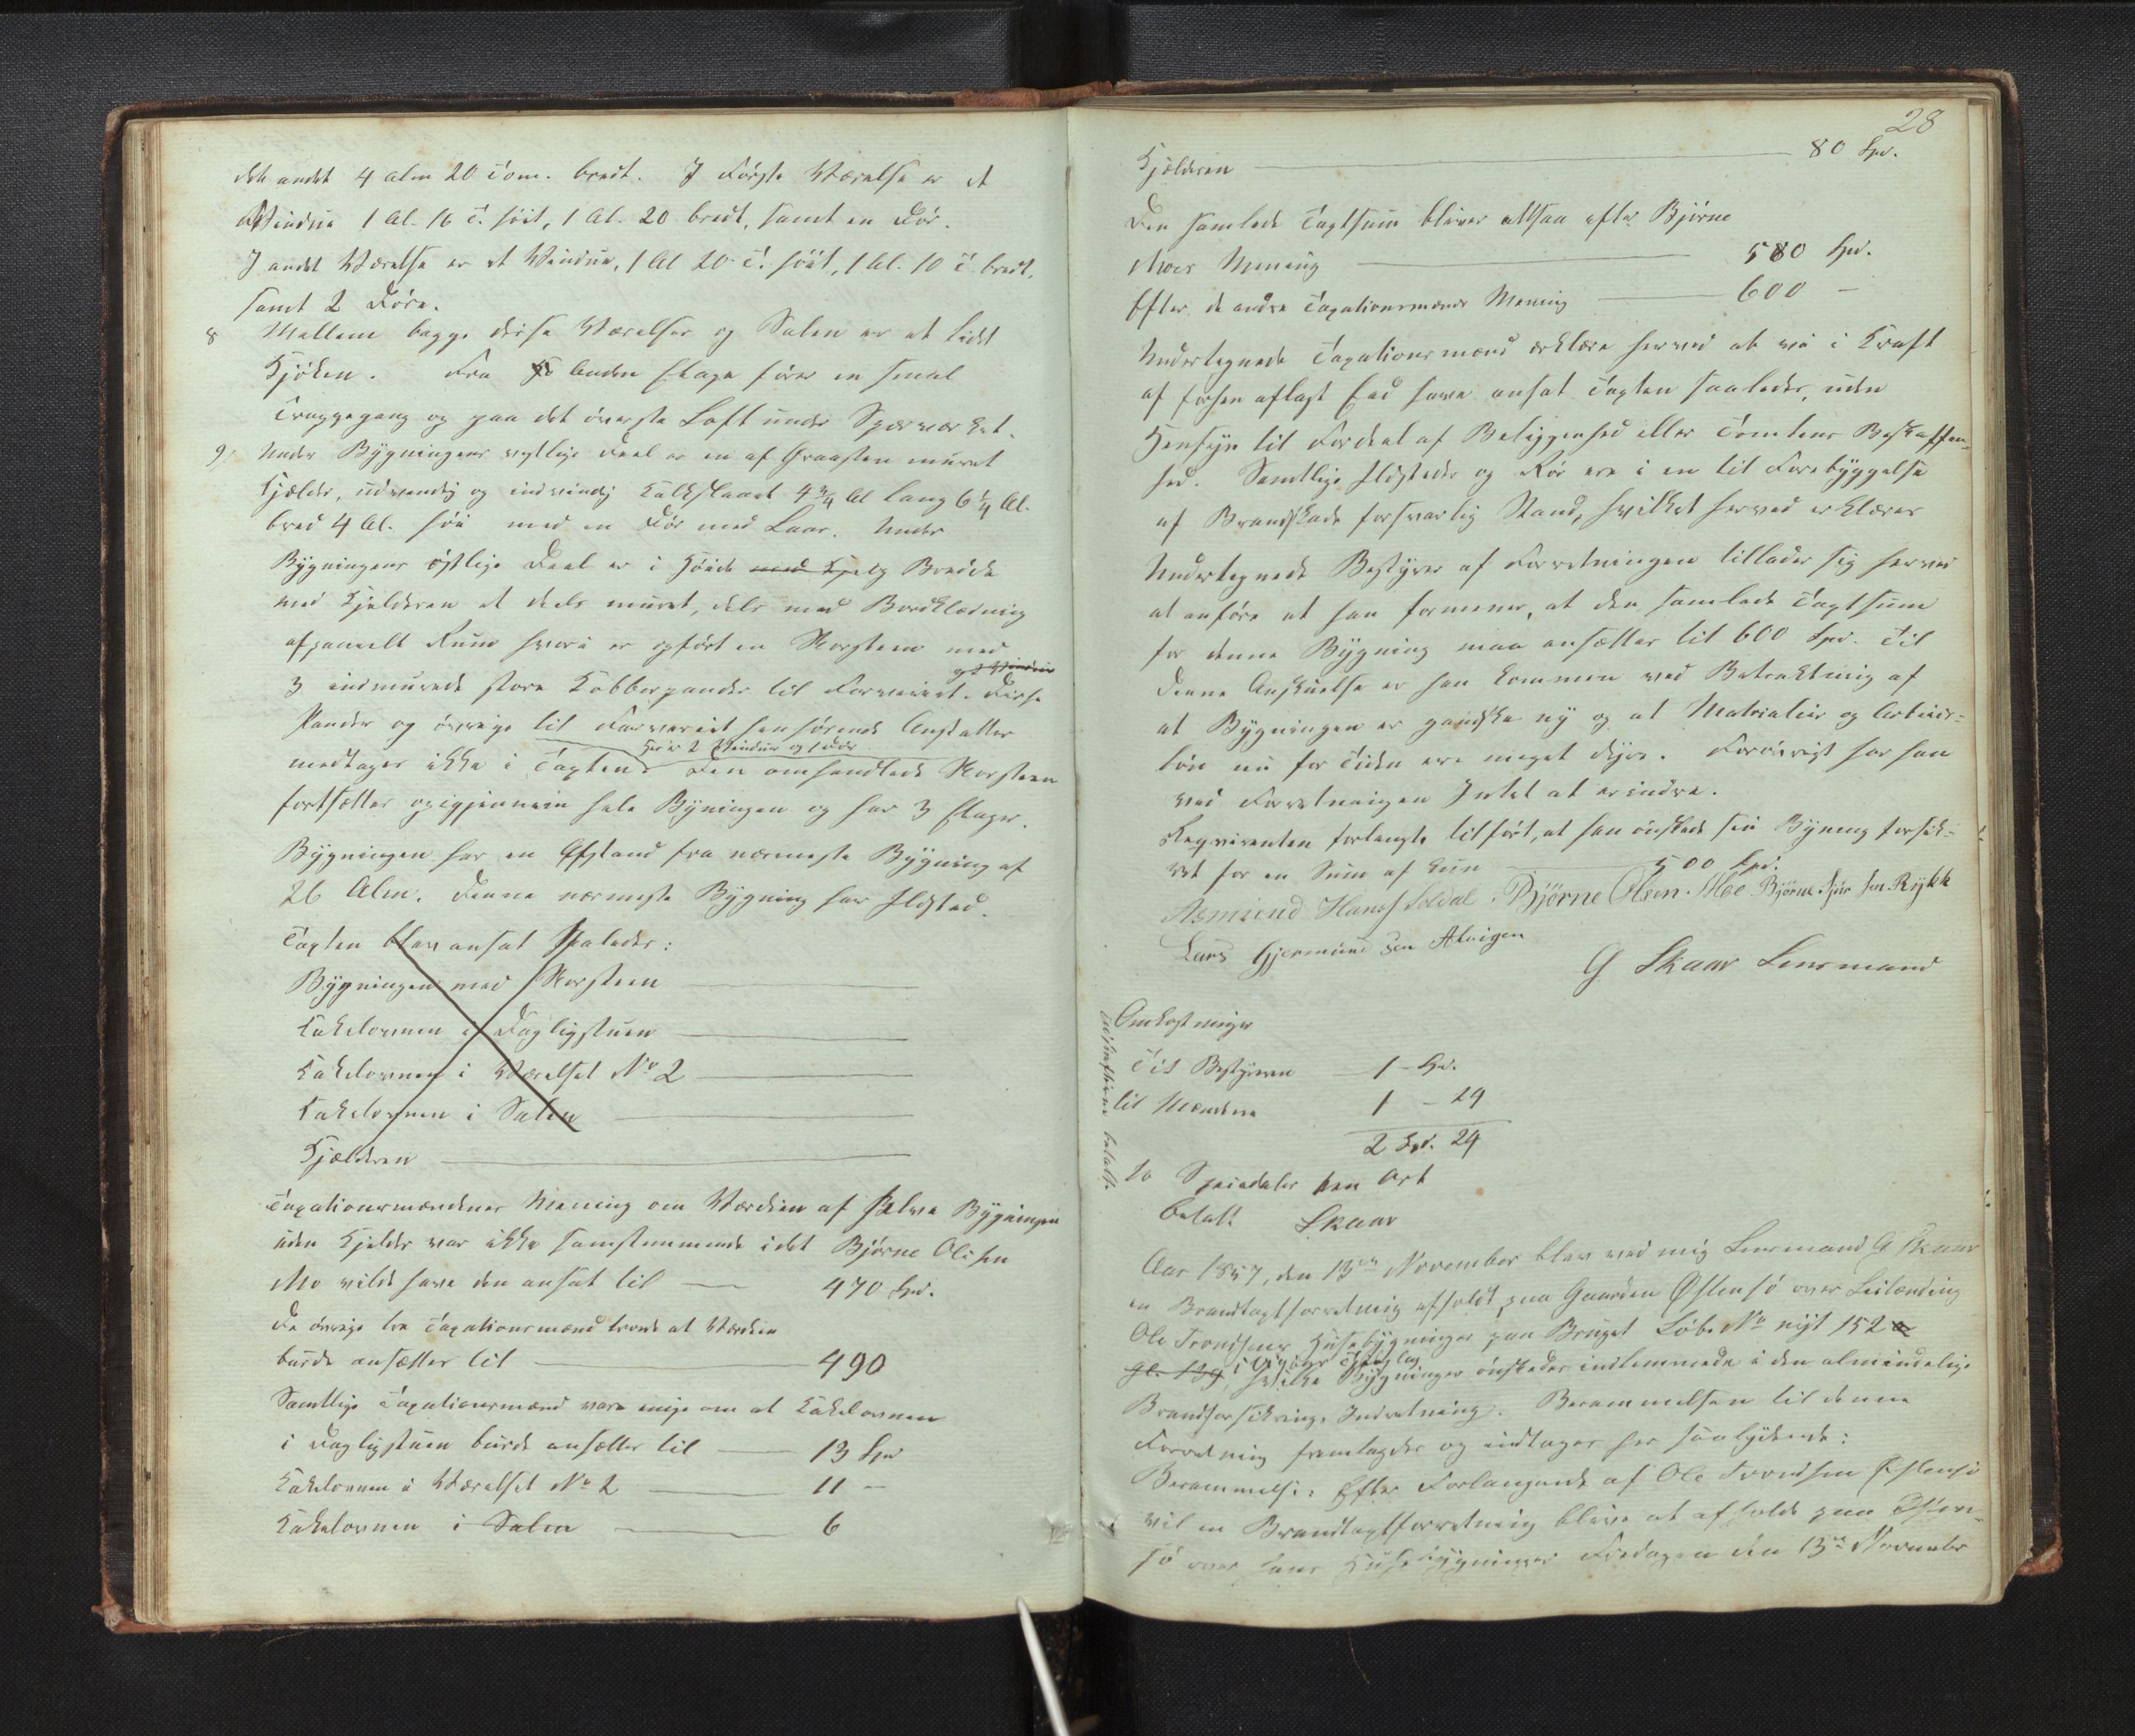 det andet 4 Alm 20 Tom. bredt. I første Værelse er et
Vindue 1 Al. 16 T. høit, 1 Al. 20 bredt, samt en Dør.
I andet Værelse er et Vindue, 1 Al 20 T. høit, 1 Al. 10 T. bredt,
samt 2 Døre.
8 Mellem begge disse Værelser og Salen er et lidet
Kjøken. Fra Anden Etage fører en smal
Trappegang og paa det øverste Loft under Sperværket.
9/ Under Bygningens vestlige Deel er en af Graasten muret
Kjelder, udvendig og indvendig kalkslaaet 4 3/4 Al lang 6 1/4 Al.
bred 4 Al. høi med en Dør med Laas. Under
Bygningens østlige Deel er i Høide med Bredde
med Kjelderen et deels muret, dels med Bordklædning
afpanelt Rum hvori er opført en Skorsteen med
og 2 Vinduer
3 indmurede store Kobberpander til Farveriet. Disse
Pander og øvrige til Farveriet henhørende Anstalter
Her er 2 Vinduer og 1 Dør.
medtages ikke i Taxten. Den omhandlede Skorsteen
fortsætter opigjennem hele Bygningen og har 3 Etager.
Bygningen har en Afstand fra nærmeste Bygning af
26 Alm. Denne nærmeste Bygning har Ildsted.
Taxten blev ansat saaledes:
Bygningen med Skorsteen
Kakelovnen i Dagligstuen
Kakelovnen i Værelset No 2
Kakelovnen i Salen
Kjælderen
Taxationsmændenes Mening om Værdien af selve Bygningen
uden Kjelder var ikke samstemmende idet Bjørne Olsen
Mo vilde have den ansat til 470 Spd.
De øvrige tre Taxationsmænd troede at Værdien
burde ansættes til 490
Samtlige Taxationsmænd vare enige om at Kakelovnen
i Dagligstuen burde ansættes til 13 Spd
Kakelovnen i Værelset No 2 11 -
Kakelovnen i Salen 6
28
Kjælderen 80 Spd.
Den samlede Taxtsum bliver altsaa efter Bjørne
Moes Mening 580 Spd.
Efter de andre Taxationsmænds Mening 600 -
Undertegnede Taxationsmænd erklære herved at vi i Kraft
af forhen aflagt Eed have ansat Taxten saaledes, uden
Hensyn til Fordeel af Beliggenhed eller Tomtens Beskaffen-
hed. Samtlige Ildsteder og Rør ere i en til Forebyggelse
af Brandskade forsvarlig Stand, hvilket herved erklæres
Undertegnede Bestyrer af Forretningen tillader sig herved
at anføre at han formener, at den samlede Taxtsum
for denne Bygning maa ansættes til 600 Spd. Til
denne Anskuelse er han kommen ved Betraktning af
at Bygningen er gandske ny og at Materialier og Arbeids-
løn nu for Tiden ere meget dyre. Forøvrigt har han
ved Forretningen Intet at erindre.
Reqvirenten forlangte tilført, at han ønskede sin Bygning forsik-
ret for en Sum af kun 500 Spd.
Asmund Hanss Soldal. Bjørne Olsen Moe Bjørne Sjur sen Rykk
Lars Gjermund sen Alvigen
G Skaar Lensmand
Omkostninger
Til Bestyreren 1 - Spd.
til Mændene 1 - 24
2 Spd. 24
to Speciedaler een Ort
betalt Skaar
Aar 1857, den 13de November blev ved mig Lensmand G Skaar
en Brandtaxtforretning afholdt paa Gaarden Østensø over Leilænding
Ole Trondsens Husebygninger paa Bruget Løb. No nyt 152
gl. 139, hvilke Bygninger ønskedes indlemmede i den almindelige
Brandforsikrings Indretning. Berammelsen til denne
Forretning fremlagdes og indtages her saalydende:
Berammelse: Efter Forlangende af Ole Trondsen Østensø
vil en Brandtaxtforretning blive at afholde paa Østen-
sø over hans Husebygninger Fredagen den 13de November